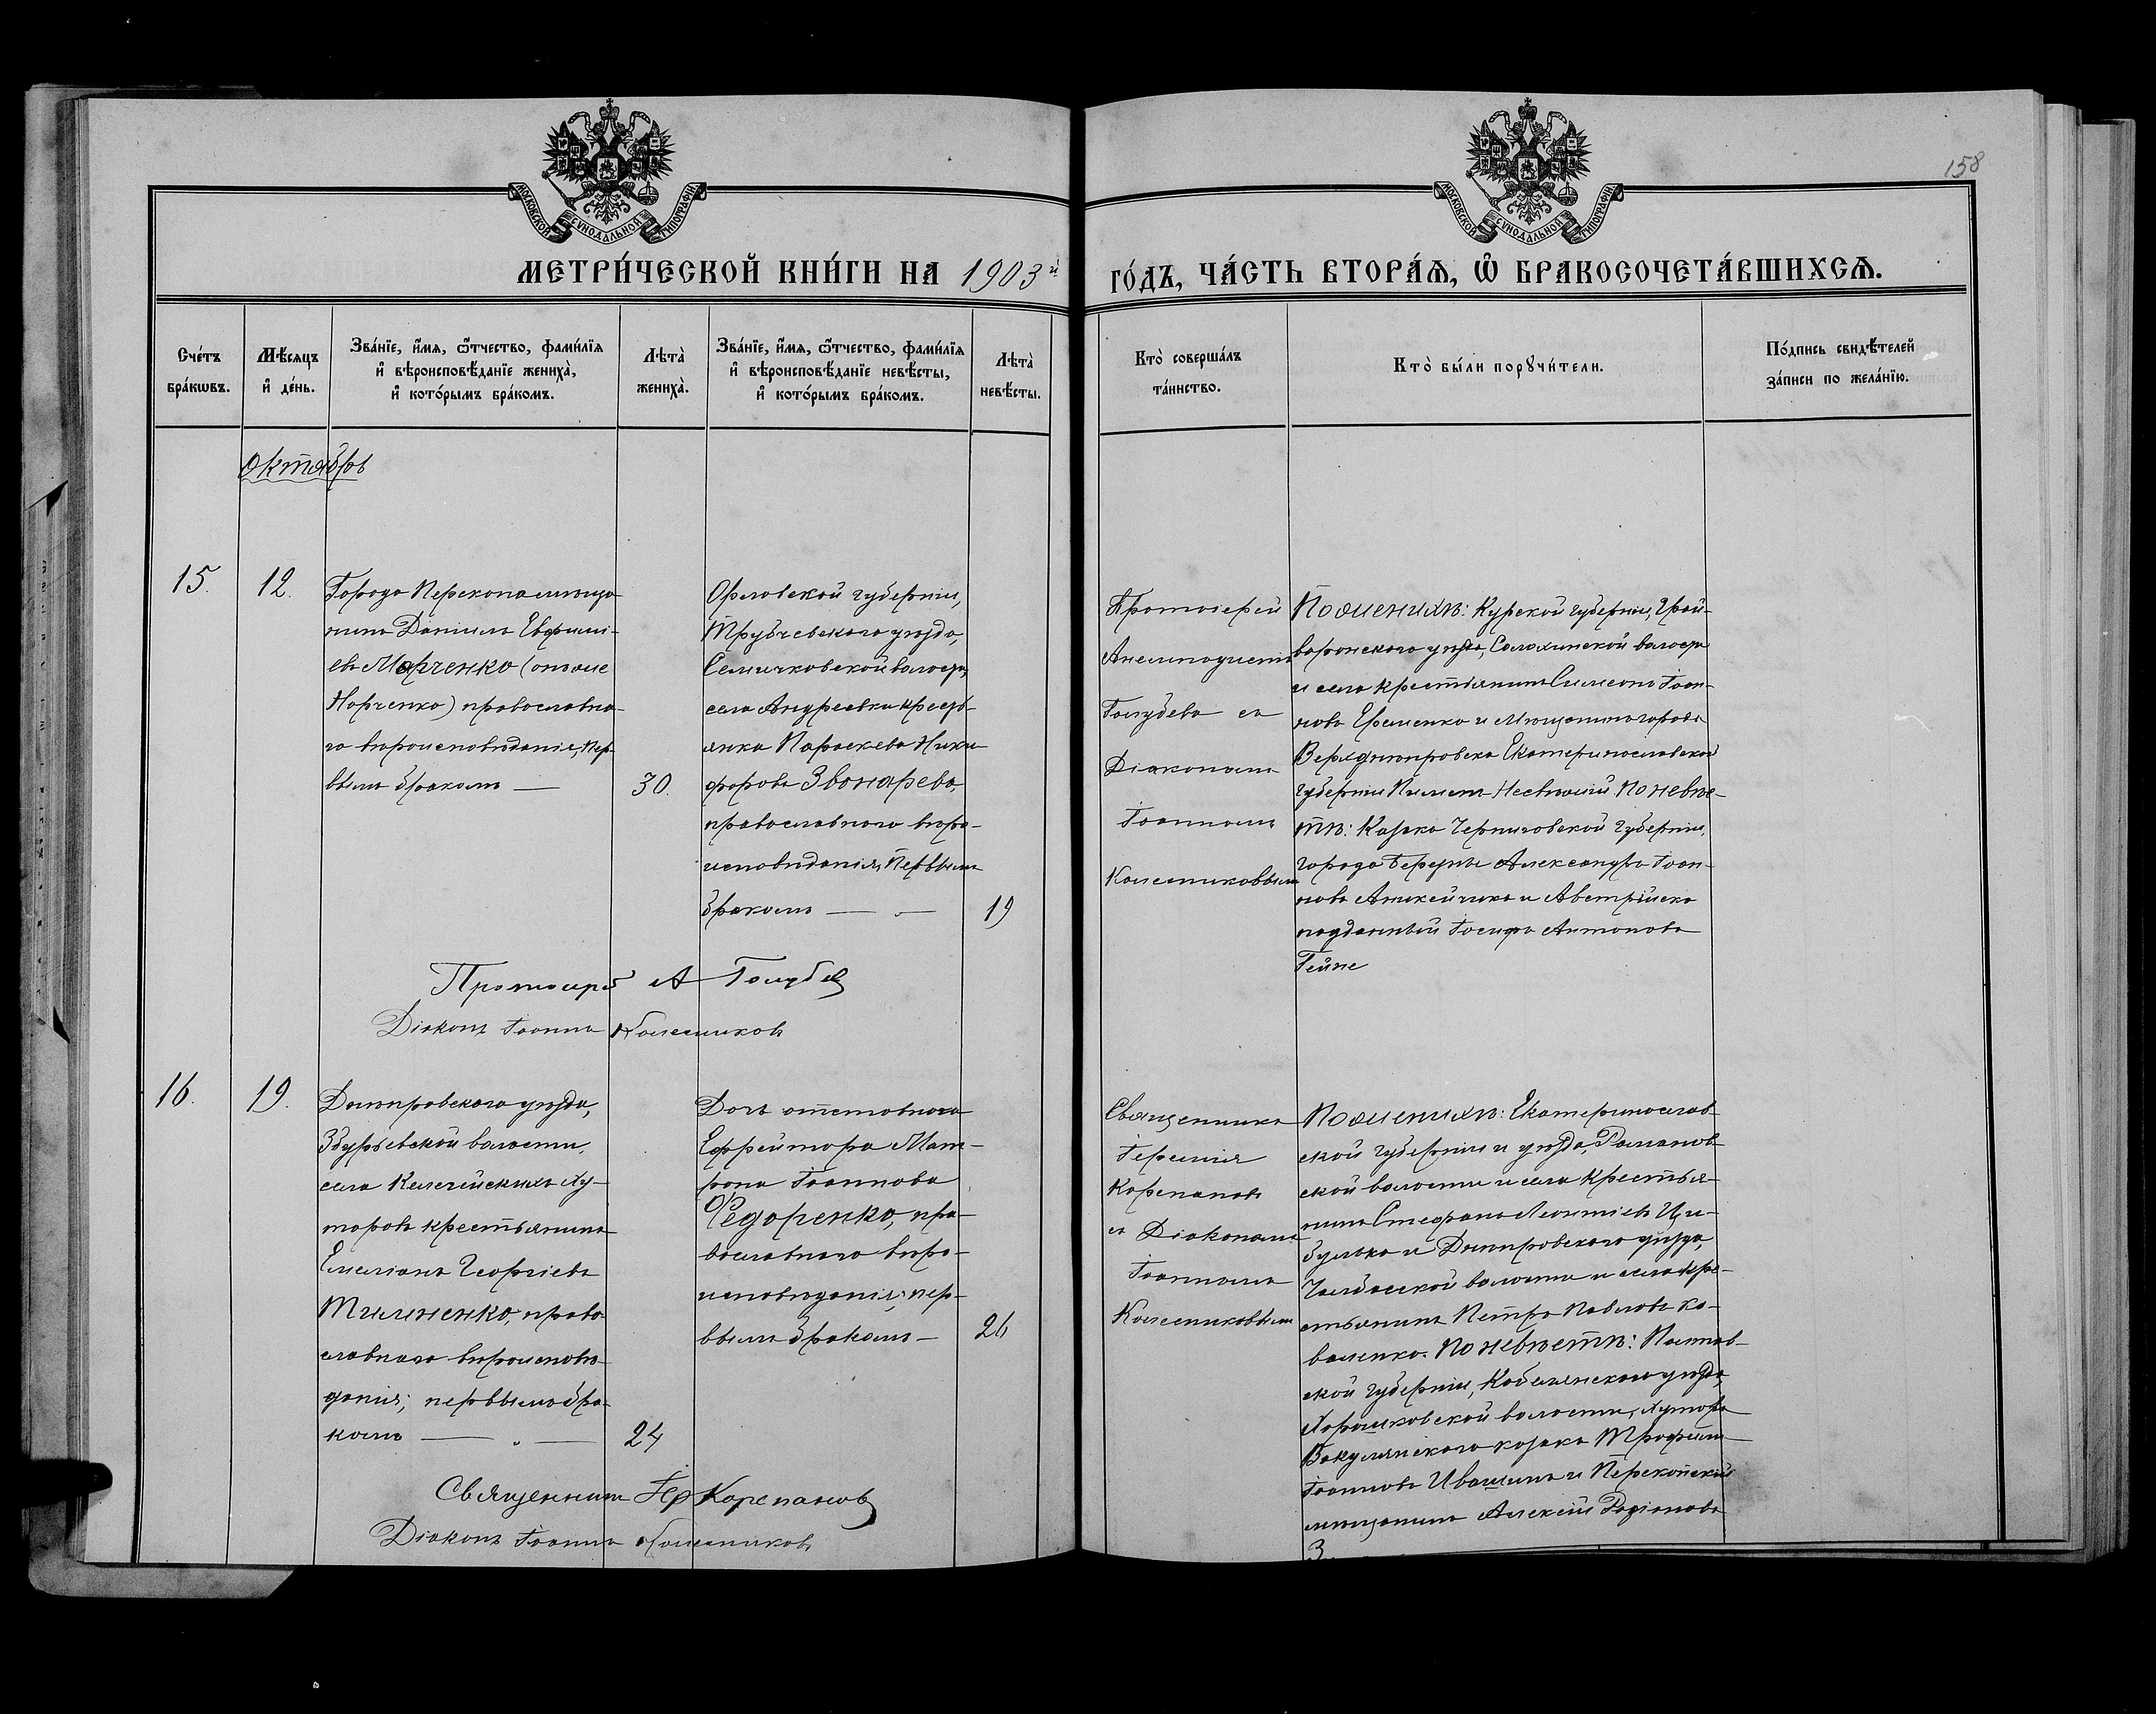 158
МОСКОВСКОЙ СѴНОДАЛЬНОЙ ТИПОГРАФІИ
МОСКОВСКОЙ СѴНОДАЛЬНОЙ ТИПОГРАФІИ
МЕТРИ́ЧЕСКОЙ КНИ́ГИ НА 1903й
ГО́ДЪ, ЧА́СТЬ ВТОРА́Ѧ, Ѽ БРАКОСОЧЕТА́ВШИХСѦ.
Сче́тъ
бра́кѡвъ.
Мѣ́сяцъ
и҆ де́нь.
Зва́нїе, и҆́мѧ, ѻ҆́тчество, фами́лїѧ
и҆ вѣроисповѣ́данїе жениха̀,
и҆ кото́рымъ бра́комъ.
Лѣта̀
жениха̀.
Зва́нїе, и҆́мѧ, ѻ҆́тчество, фами́лїѧ
и҆ вѣроисповѣ́данїе невѣ́сты,
и҆ кото́рымъ бра́комъ.
Лѣта̀
невѣ́сты.
Кто̀ соверша́лъ
та́инство.
Кто̀ бы́ли порꙋчи́тели.
По́дпись свидѣ́телей
за́писи по жела́нїю.
Октябрь
15.
12.
Города Перекопа мѣща-
нинъ Даніилъ Евфимі-
евъ Марченко (онъ же
Харченко) православна-
го вѣроисповѣданія, пер-
вымъ бракомъ —
30.
Орловской губерніи,
Трубчевского уѣзда,
Семячковской волости,
села Андреевки кресть-
янка Параскева Ники-
форова Звонарева,
православного вѣро-
исповѣданія, Первымъ
бракомъ —
19
Протоіерей
Голубевъ съ
Діакономъ
Іоанномъ
Колесниковымъ
По женихѣ: Курской губерніи, Грай-
воронского уѣзда, Солохинской волости
и села крестьянинъ Симеонъ Іоан-
новъ Еременко и Мѣщанинъ города
Верхднѣпровска Екатеринославской
губерніи По невѣс-
тѣ: Казакъ Черниговской губерніи,
города Березны Александръ Іоан-
новъ и Австрійско
подданный Іосифъ Антоновъ
Гейне
Протоіерей А Голубев
Діаконъ Іоаннъ Колесниковъ
16.
19.
Днѣпровского уѣзда,
Збурьевской волости,
села Келегейскихъ Ху-
торовъ крестьянинъ
Емеліанъ Георгіевъ
Тимченко, право-
славнаго вѣроисповѣ-
данія; первымъ бра-
комъ —
24
Дочь отставного
Ефрейтора Мат-
рона Іоаннова
Федоренко, пра-
вославного вѣро-
исповѣданія; пер-
вымъ бракомъ —
26
Священникъ
Іеремія
Карепановъ
съ Діакономъ
Іоанномъ
Колесниковымъ
По женихѣ: Екатеринослав-
ской губерніи и уѣзда, Романов-
ской волости и села Крестья-
нинъ Стефанъ Леонтіевъ Ци-
булько и Днѣпровского уѣзда,
Чалбасской волости и села кре-
стьянинъ Петръ Павловъ Ко-
валенко. По невѣстѣ: Полтав-
ской губерніи, Кобелякского уѣзда,
волости, хутора
казакъ Трофимъ
Іоанновъ Ивашинъ и Перекопскій
мѣщанинъ Алексій Родіоновъ
З
Священникъ Іер Карепановъ
Діаконъ Іоаннъ Колесниковъ